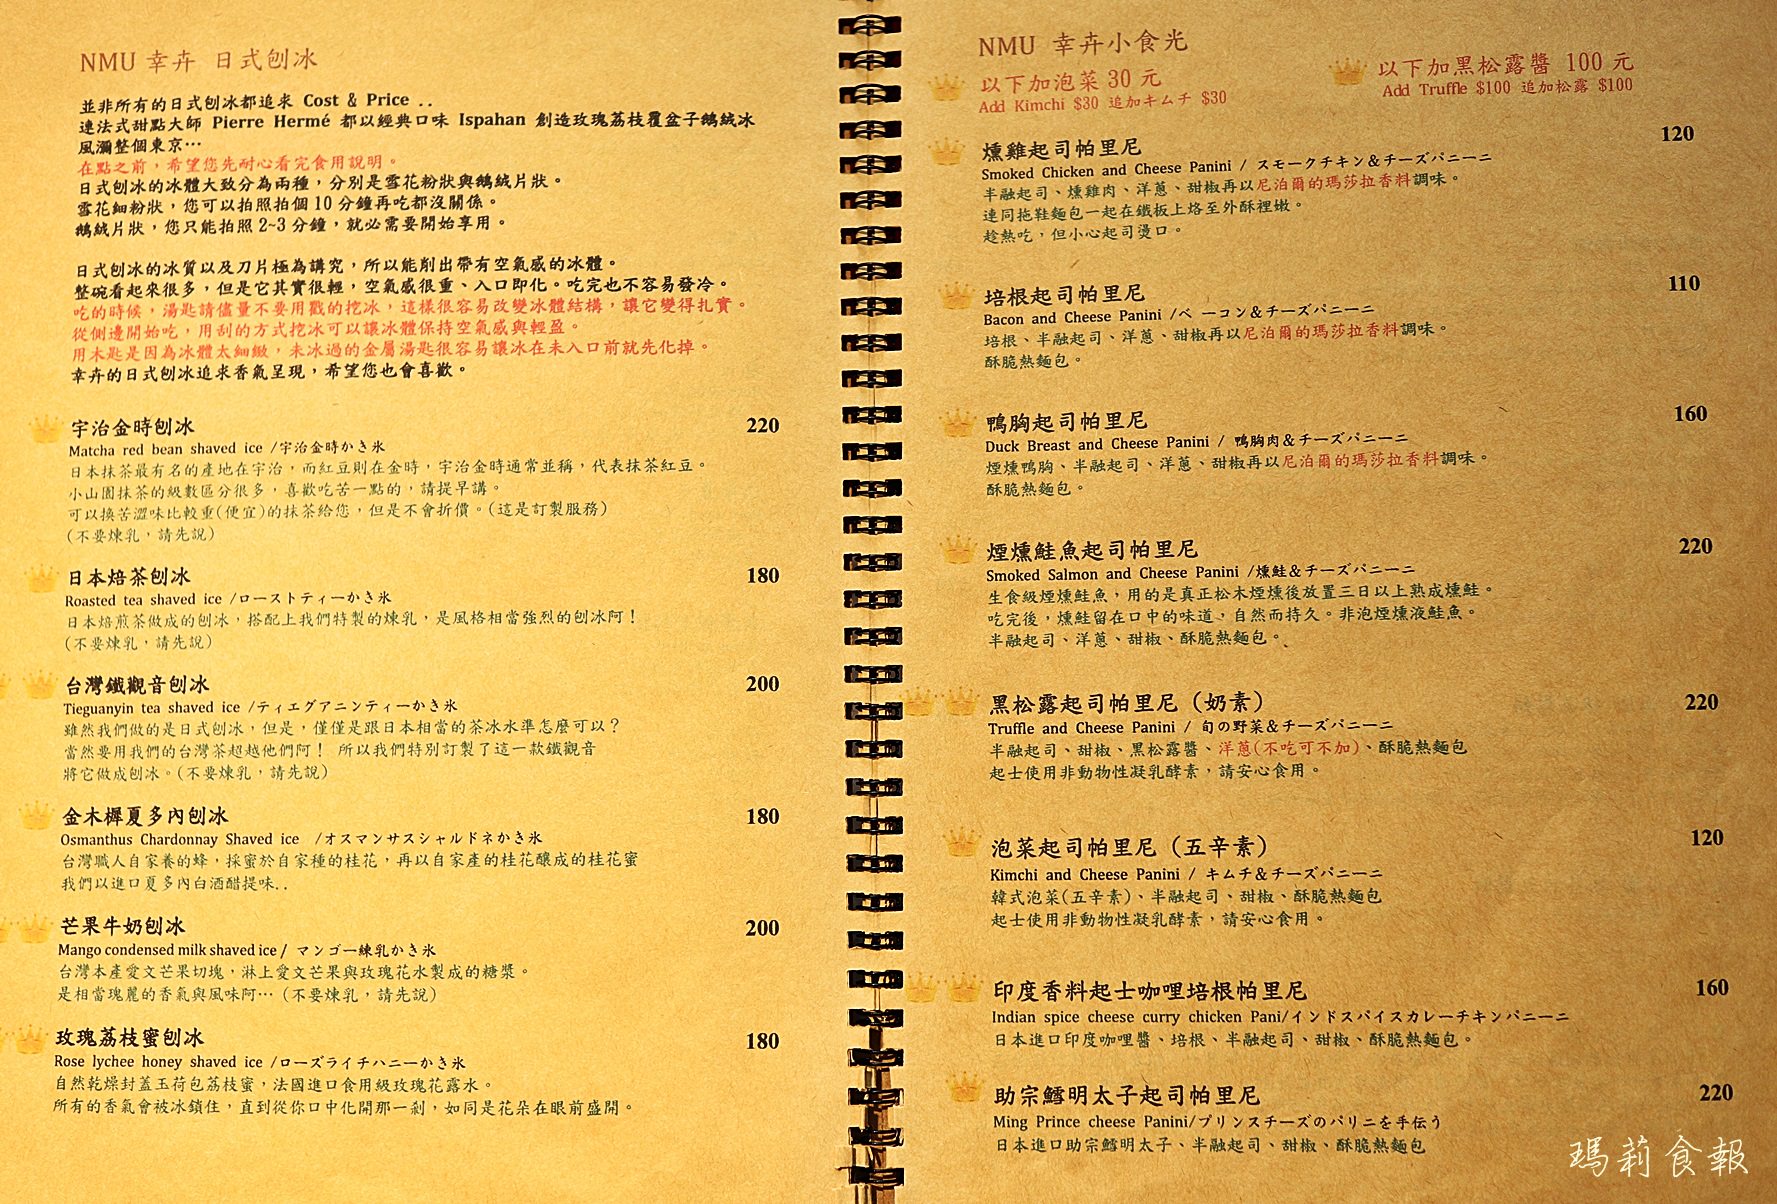 NMU 幸卉 日式刨冰
並非所有的日式刨冰都追求 Cost & Price ..
連法式甜點大師 Pierre Hermé 都以經典口味 Ispahan 創造玫瑰荔枝覆盆子鵝絨冰
風瀰整個東京…
在點之前，希望您先耐心看完食用說明。
日式刨冰的冰體大致分為兩種，分別是雪花粉狀與鵝絨片狀。
雪花細粉狀，您可以拍照拍個 10 分鐘再吃都沒關係。
鵝絨片狀，您只能拍照 2~3 分鐘，就必需要開始享用。
日式刨冰的冰質以及刀片極為講究，所以能削出帶有空氣感的冰體。
整碗看起來很多，但是它其實很輕，空氣感很重、入口即化。吃完也不容易發冷。
吃的時候，湯匙請儘量不要用戳的挖冰，這樣很容易改變冰體結構，讓它變得扎實。
從側邊開始吃，用刮的方式挖冰可以讓冰體保持空氣感與輕盈。
用木匙是因為冰體太細緻，未冰過的金屬湯匙很容易讓冰在未入口前就先化掉。
幸卉的日式刨冰追求香氣呈現，希望您也會喜歡。
宇治金時刨冰 220
Matcha red bean shaved ice /宇治金時かき氷
日本抹茶最有名的產地在宇治，而紅豆則在金時，宇治金時通常並稱，代表抹茶紅豆。
小山園抹茶的級數區分很多，喜歡吃苦一點的，請提早講。
可以換苦澀味比較重(便宜)的抹茶給您，但是不會折價。(這是訂製服務)
(不要煉乳，請先說)
日本焙茶刨冰 180
Roasted tea shaved ice /ローストティーかき氷
日本焙煎茶做成的刨冰，搭配上我們特製的煉乳，是風格相當強烈的刨冰阿！
(不要煉乳，請先說)
台灣鐵觀音刨冰 200
Tieguanyin tea shaved ice /ティエグアニンティーかき氷
雖然我們做的是日式刨冰，但是，僅僅是跟日本相當的茶冰水準怎麼可以？
當然要用我們的台灣茶超越他們阿！ 所以我們特別訂製了這一款鐵觀音
將它做成刨冰。(不要煉乳，請先說)
金木樨夏多內刨冰 180
Osmanthus Chardonnay Shaved ice /オスマンサスシャルドネかき氷
台灣職人自家養的蜂，採蜜於自家種的桂花，再以自家產的桂花釀成的桂花蜜
我們以進口夏多內白酒醋提味..
芒果牛奶刨冰 200
Mango condensed milk shaved ice / マンゴー練乳かき氷
台灣本產愛文芒果切塊，淋上愛文芒果與玫瑰花水製成的糖漿。
是相當瑰麗的香氣與風味阿… (不要煉乳，請先說)
玫瑰荔枝蜜刨冰 180
Rose lychee honey shaved ice /ローズライチハニーかき氷
自然乾燥封蓋玉荷包荔枝蜜，法國進口食用級玫瑰花露水。
所有的香氣會被冰鎖住，直到從你口中化開那一剎，如同是花朵在眼前盛開。
NMU 幸卉小食光
以下加泡菜 30 元
Add Kimchi $30 追加キムチ $30
以下加黑松露醬 100 元
Add Truffle $100 追加松露 $100
燻雞起司帕里尼 120
Smoked Chicken and Cheese Panini / スモークチキン＆チーズパニーニ
半融起司、燻雞肉、洋蔥、甜椒再以尼泊爾的瑪莎拉香料調味。
連同拖鞋麵包一起在鐵板上烙至外酥裡嫩。
趁熱吃，但小心起司燙口。
培根起司帕里尼 110
Bacon and Cheese Panini /ベ ーコン＆チーズパニーニ
培根、半融起司、洋蔥、甜椒再以尼泊爾的瑪莎拉香料調味。
酥脆熱麵包。
鴨胸起司帕里尼 160
Duck Breast and Cheese Panini / 鴨胸肉＆チーズパニーニ
煙燻鴨胸、半融起司、洋蔥、甜椒再以尼泊爾的瑪莎拉香料調味。
酥脆熱麵包。
煙燻鮭魚起司帕里尼 220
Smoked Salmon and Cheese Panini /燻鮭＆チーズパニーニ
生食級煙燻鮭魚，用的是真正松木煙燻後放置三日以上熟成燻鮭。
吃完後，燻鮭留在口中的味道，自然而持久。非泡煙燻液鮭魚。
半融起司、洋蔥、甜椒、酥脆熱麵包。
黑松露起司帕里尼（奶素） 220
Truffle and Cheese Panini / 旬の野菜＆チーズパニーニ
半融起司、甜椒、黑松露醬、洋蔥(不吃可不加)、酥脆熱麵包
起士使用非動物性凝乳酵素，請安心食用。
泡菜起司帕里尼（五辛素） 120
Kimchi and Cheese Panini / キムチ＆チーズパニーニ
韓式泡菜(五辛素)、半融起司、甜椒、酥脆熱麵包
起士使用非動物性凝乳酵素，請安心食用。
印度香料起士咖哩培根帕里尼 160
Indian spice cheese curry chicken Pani/インドスパイスカレーチキンパニーニ
日本進口印度咖哩醬、培根、半融起司、甜椒、酥脆熱麵包。
助宗鱈明太子起司帕里尼 220
Ming Prince cheese Panini/プリンスチーズのパリニを手伝う
日本進口助宗鱈明太子、半融起司、甜椒、酥脆熱麵包
瑪莉食報